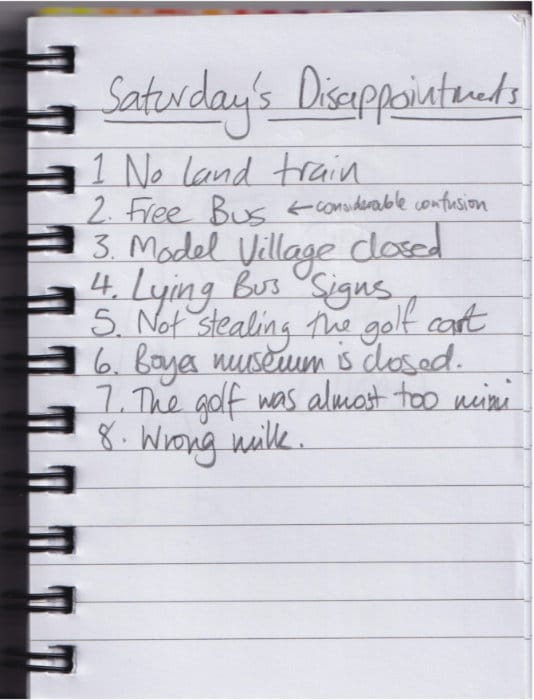 Saturday's Disappointments
1 No land train
2. Free Bus ← considerable confusion
3. Model Village closed
4. Lying Bus Signs
5. Not stealing the golf cart
6. Boyes museum is closed.
7. The golf was almost too mini
8. Wrong milk.